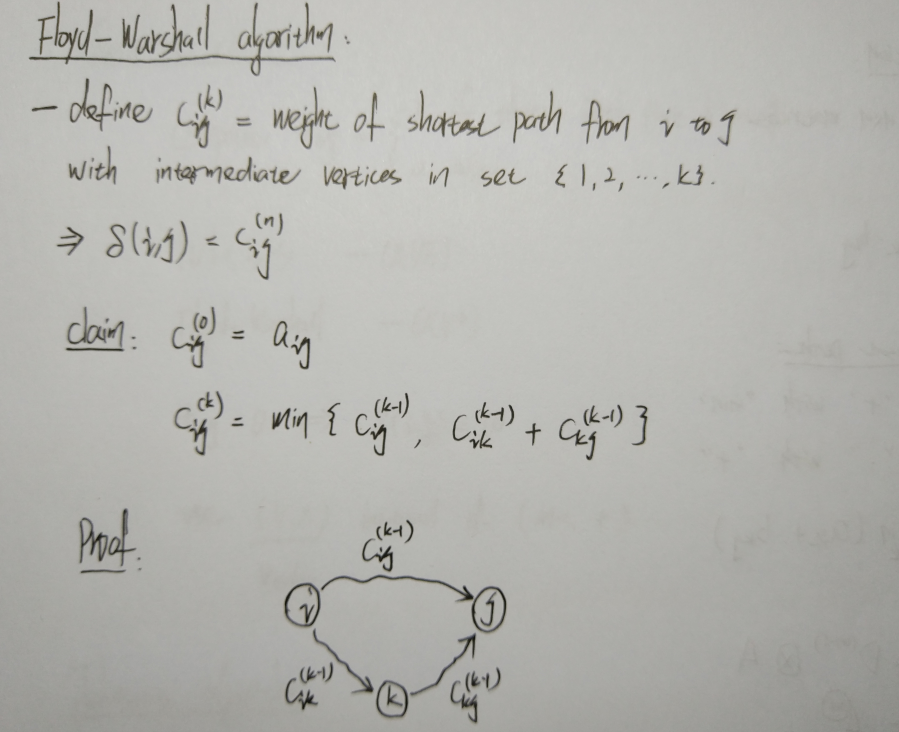 Floyd-Warshall algorithm:
- define C_ij^(k) = weight of shortest path from i to j
with intermediate vertices in set {1, 2, ..., k}.
⇒ δ(i,j) = C_ij^(n)
claim: C_ij^(0) = a_ij
C_ij^(k) = min { C_ij^(k-1), C_ik^(k-1) + C_kj^(k-1) }
Proof:
C_ij^(k-1)
i j
C_ik^(k-1) k C_kj^(k-1)